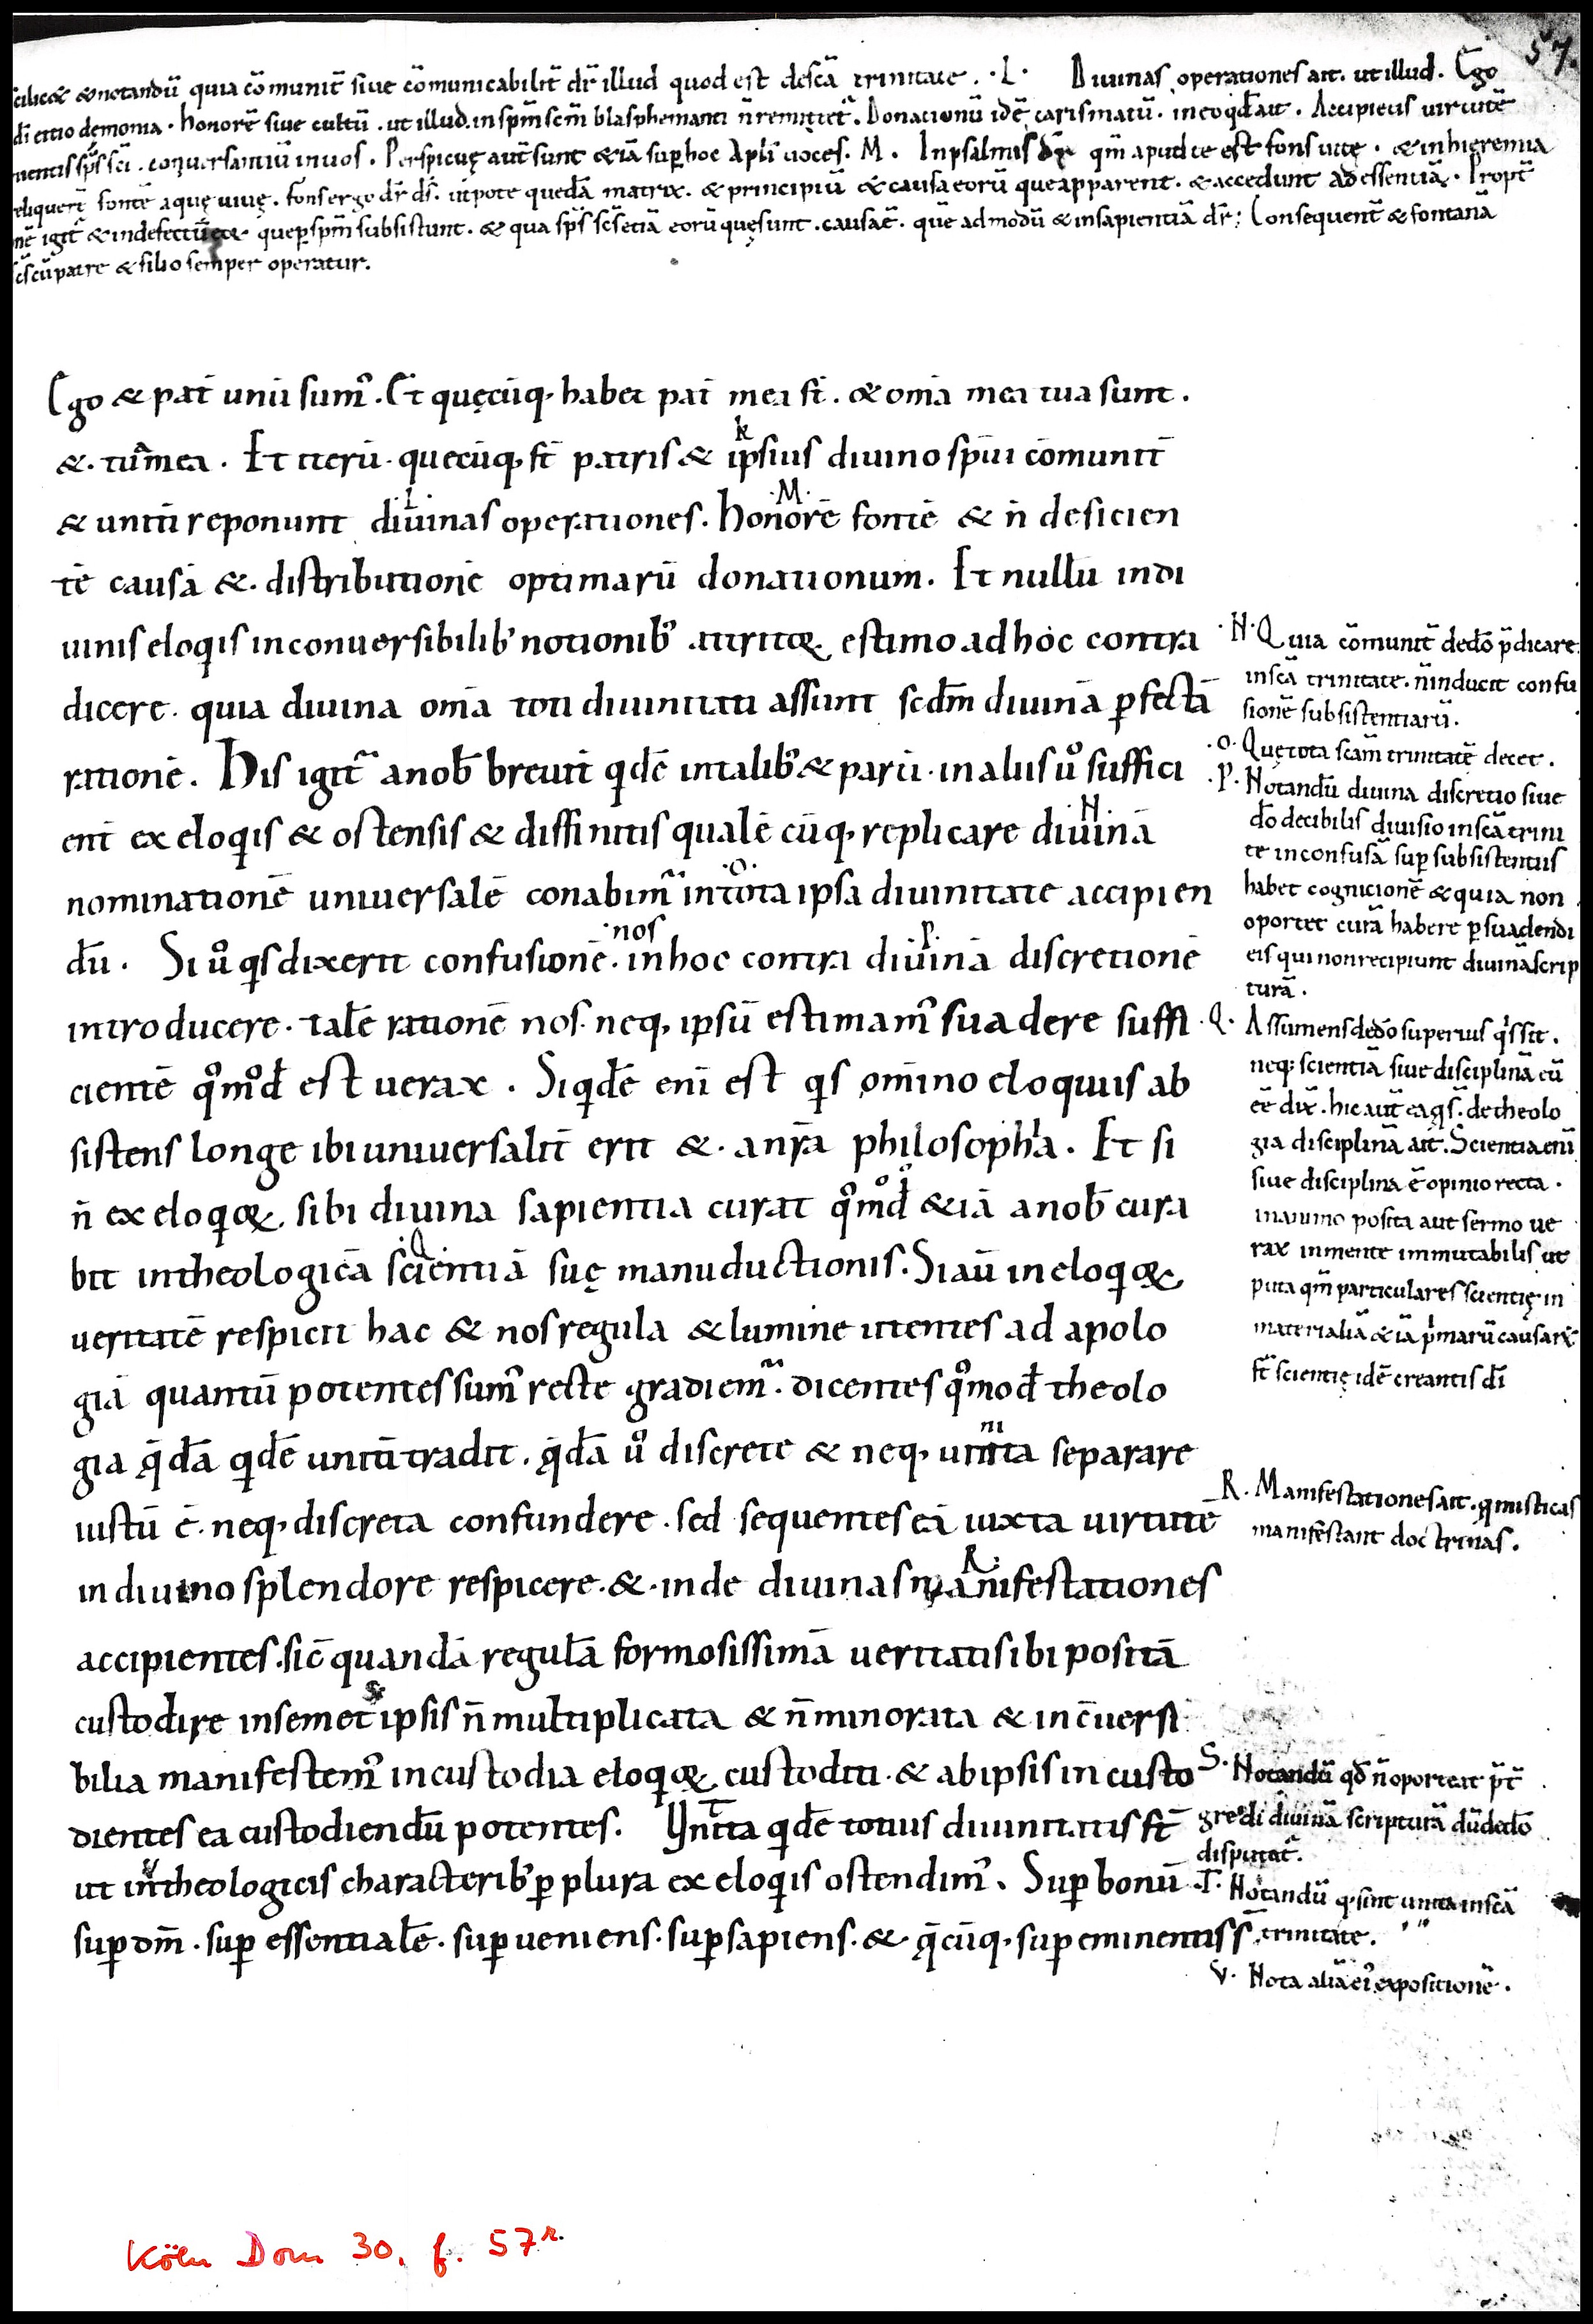 57.
scilicet &notandū quia cōmunit̄ siue cōmunicabilit̄ dr̄ illud quod est descā trinitate. ·L· Diuinas operationes ait. ut illud. Ego
di eitio demonia. honorē siue cultū. ut illud. inspm̄ scm̄ blasphemanti n̄remittet̄. Donationū idē carismatū. ineo qd̄ ait. Accipietis uirtutē
uenientis sp̄s sc̄i. conuersantiū inuos. Perspicuę aut̄ sunt &iā suphoc Apl̄i uoces. M. Inpsalmis qm̄ apud te est fons uitę. &inhieremia
reliquer̄ fontē aquę uiuę. fonsergo dr̄ ds̄. utpote quedā matrix. & principiū & causa eorū queapparent. & accedunt ad essentiā. Propt̄
nē igit̄ & indefectū queꝑspm̄ subsistunt. & qua sp̄s sc̄s etiā eorū quęsunt. causaē. quē admodū & insapientiā dr̄; Consequent̄ & fontanā
sc̄s cūpatre & filio semper operatur.
Ego & pat̄ unū sum᾽. Et quęcūq· habet pat̄ mea st̄. & om̄a mea tua sunt.
&· tuāmea. Et iterū· quecūq· st̄ patris & ipsius diuino spūi cōmunit̄
k
& unitū reponunt diuinas operationes. honorē fontē & n̄ deficien
·L· ·M·
tē causā &· distributionē optimarū donationum. Et nullū indi
uinis eloqis inconuersibilib᾽ notionib᾽ nutritoꝝ estimo adhoc contra
dicere· quia diuina om̄a toti diuinitati assunt scdm̄ diuinā ꝑfectā
rationē. His igit̄ anob̄ breuit̄ qdē intalib᾽ & parū· inaliis u᾽o suffici
ent̄ ex eloqis & ostensis & diffinitis qualē cūq· replicare diuinā
N
nominationē uniuersalē conabim᾽ intota ipsa diuinitate accipien
·o·
dū. Si u᾽o qs dixerit confusionē. inhoc contra diuinā discretionē
·nos P.
introducere· talē rationē nos· neq· ipsū estimam᾽ suadere suffi
cientē qomod̄ est uerax. Siqdē enī est qs om̄ino eloquiis ab
sistens longe ibi uniuersalit̄ erit &· anr̄a philosophia. Et si
n̄ ex eloqoꝝ sibi diuina sapientia curat qomod̄ &iā anob̄ cura
bit intheologicā scientiā suę manuductionis. Siaū ineloqoꝝ
Q
ueritatē respicit hac & nosregula & lumine utentes ad apolo
giā quantū potentes sum᾽ recte gradiem᾽. dicentes qomod̄ theolo
gia q̄dā qdē unitū tradit. q̄dā u᾽o discrete & neq· unita separare
iustū ē. neq· discreta confundere. sed sequentes eā iuxta uirtutē
in diuino splendore respicere. &· inde diuinas manifestationes
R.
accipientes. sic̄ quandā regulā formosissimā ueritatis ibi positā
custodire insemet ipsis n̄multiplicata & n̄minorata & inc̄uersi
S
bilia manifestem᾽ incustodia eloqoꝝ custoditi· & abipsis in custo
dientes ea custodiendū potentes. Unita qdē totius diuinitatis st̄
T
ut intheologicis characterib᾽ ꝑ plura ex eloqis ostendim᾽. Suꝑ bonū
V
suꝑ dm̄. suꝑ essentialē. suꝑ ueniens. suꝑ sapiens. &· q̄cūq· suꝑ eminentiss
·N· Quia cōmunit̄ dedō p̄dicare
inscā trinitate. n̄inducit confu
sionē subsistentiarū.
·o· Quę tota scām trinitatē decet.
·P· Notandū diuina discretio siue
dō decibilis diuisio inscā trini
te inconfusā suꝑ subsistentiis
habet cognicionē & quia non
oportet curā habere ꝑsuadendi
eis qui nonrecipiunt diuināscrip
turā.
·Q· Assumens dedō superius qs sit.
neq· scientiā siue disciplinā eū
eē dix̄. hic aut̄ eaqs̄. detheolo
gia disciplinā ait. Scientia enī
siue disciplina ē opinio recta.
inanimo posita aut sermo ue
rax inmente immutabilis ut
puta qm̄ particulares scientię in
materialiā &iā p̄marū causarū
st̄ scientię idē creantis dī
R. Manifestationes ait. q misticas
manifestant doctrinas.
S. Notandū qd̄ n̄oporteat p̄t̄
gredi diuinā scripturā dū dedō
disputat̄.
·T· Notandū q· sint unita inscā
trinitate.
V. Nota aliā ei᾽ expositionē.
Köln Dom 30, f. 57r.